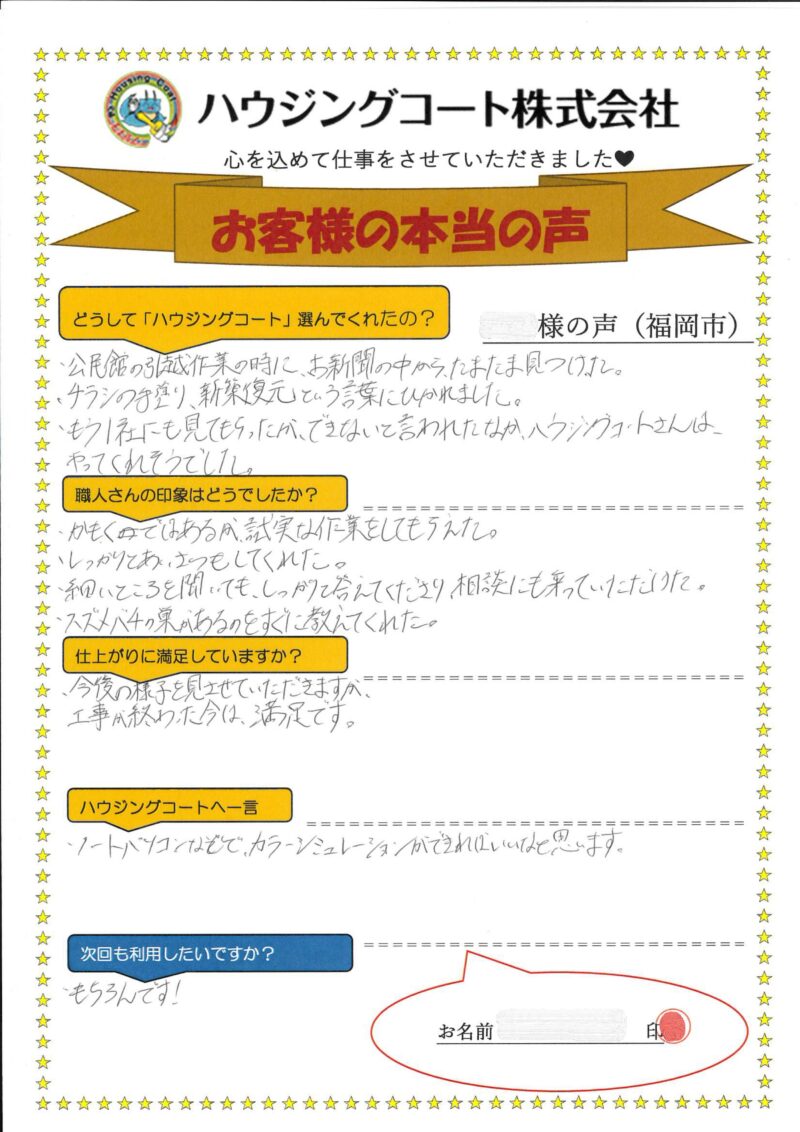 Housing Coat
ハウジングコート株式会社
心を込めて仕事をさせていただきました♥
お客様の本当の声
どうして「ハウジングコート」選んでくれたの？
様の声（福岡市）
・公民館の引越作業の時に、お新聞の中から、たまたま見つけた。
・チラシの手塗り、新築復元という言葉にひかれました。
・もう1社にも見てもらったが、できないと言われたなか、ハウジングコートさんは、
やってくれそうでした。
職人さんの印象はどうでしたか？
・かもくではあるが、誠実な作業をしてもらえた。
・しっかりとあいさつもしてくれた。
・細いところを聞いても、しっかりと答えてくださり、相談にも乗っていただけた。
・スズメバチの巣があるのをすぐに教えてくれた。
仕上がりに満足していますか？
・今後の様子を見させていただきますが、
工事が終わった今は、満足です。
ハウジングコートへ一言
・ノートパソコンなどで、カラーシミュレーションができればいいなと思います。
次回も利用したいですか？
・もちろんです！
お名前 印